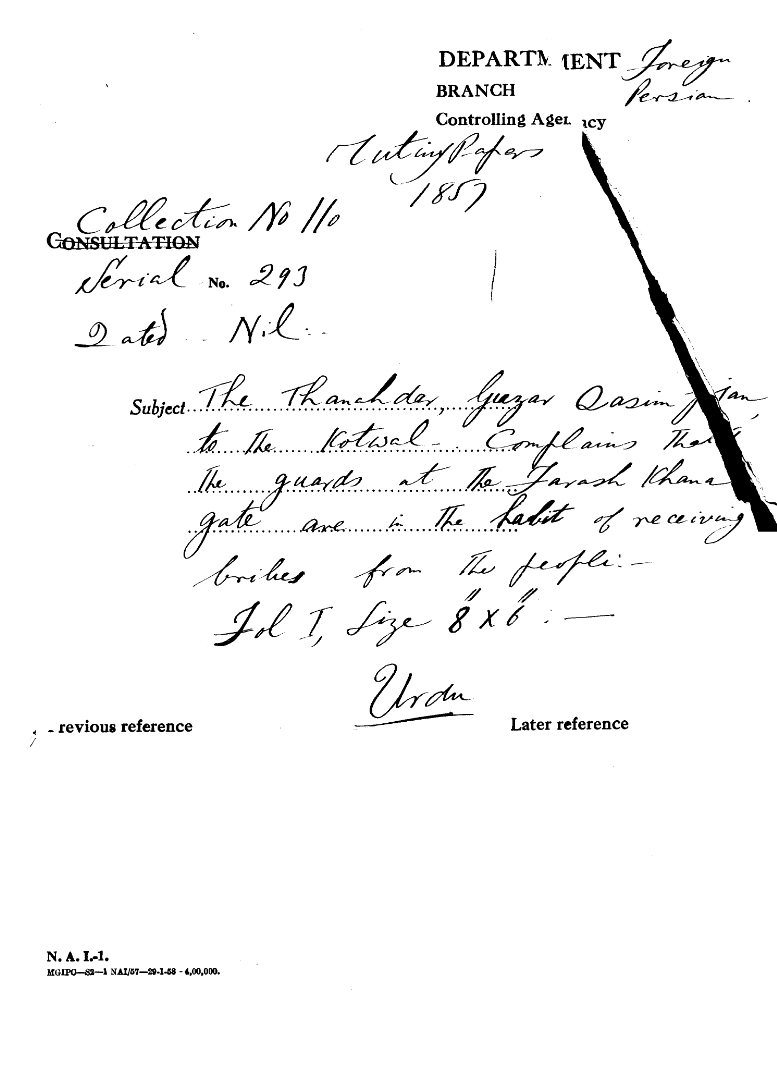 DEPARTMENT Foreign
BRANCH Persian.
Controlling Agency
Mutiny Papers
1857
Collection No 110
CONSULTATION
Serial No. 293
Dated .. Nil ..
Subject The Thanahdar, Guzar Qasim Jan,
to the Kotwal - Complains that
the guards at the Farash Khana
gate are in the habit of receiving
bribes from the people: —
Fol I, Size 8" x 6" : —
Urdu
revious reference Later reference
N. A. I.-1.
MGIPC—S2—1 NAI/57—29-1-58 - 4,00,000.